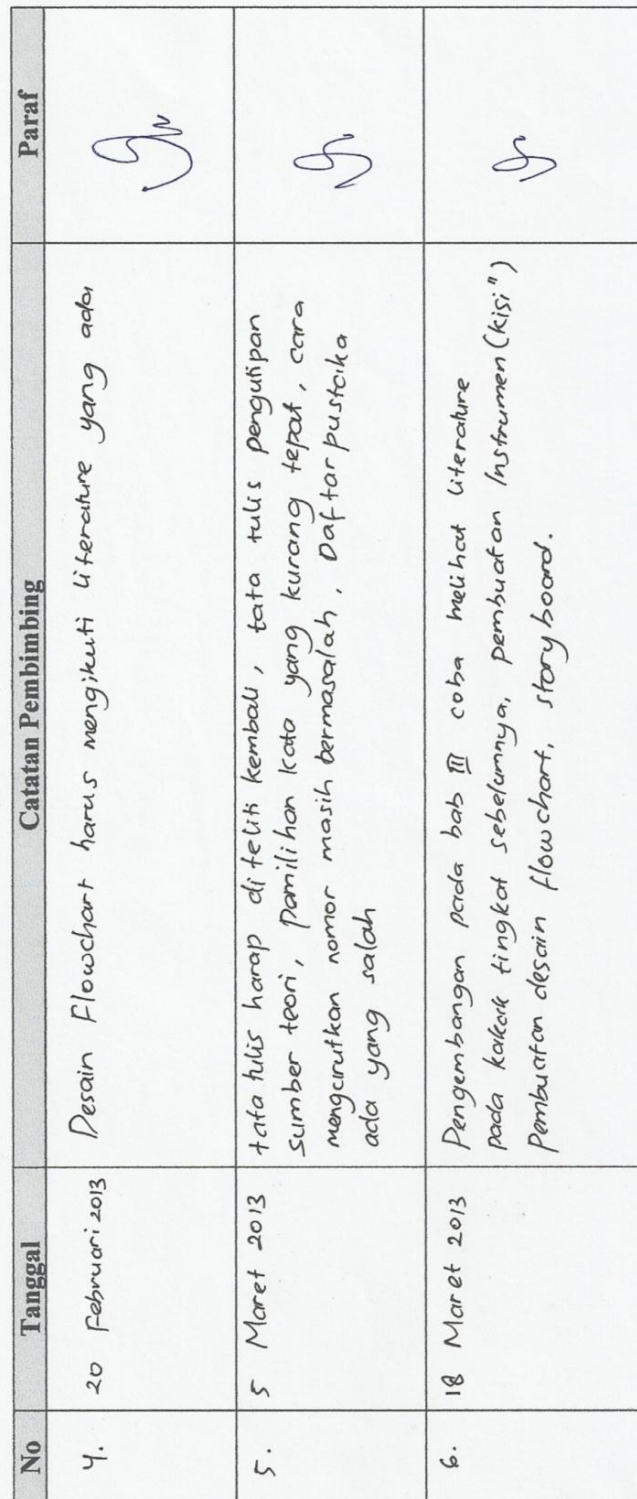 No Tanggal Catatan Pembimbing Paraf
4. 20 Februari 2013 Desain Flowchart harus mengikuti literature yang ada
5. 5 Maret 2013 tata tulis harap diteliti kembali, tata tulis pengutipan
sumber teori, pemilihan kata yang kurang tepat, cara
mengurutkan nomor masih bermasalah, Daftar pustaka
ada yang salah
6. 18 Maret 2013 Pengembangan pada bab III coba melihat literature
pada kakak tingkat sebelumnya, pembuatan Instrumen (kisi")
Pembuatan desain flowchart, story board.